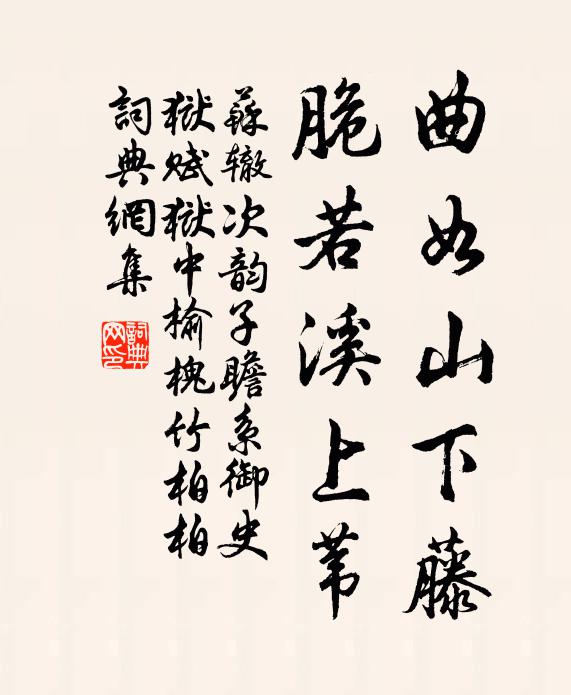 曲如山下藤
脆若溪上苇
苏辙次韵子瞻系御史
狱赋狱中榆槐竹柏柏
詞典網集
詞典网印